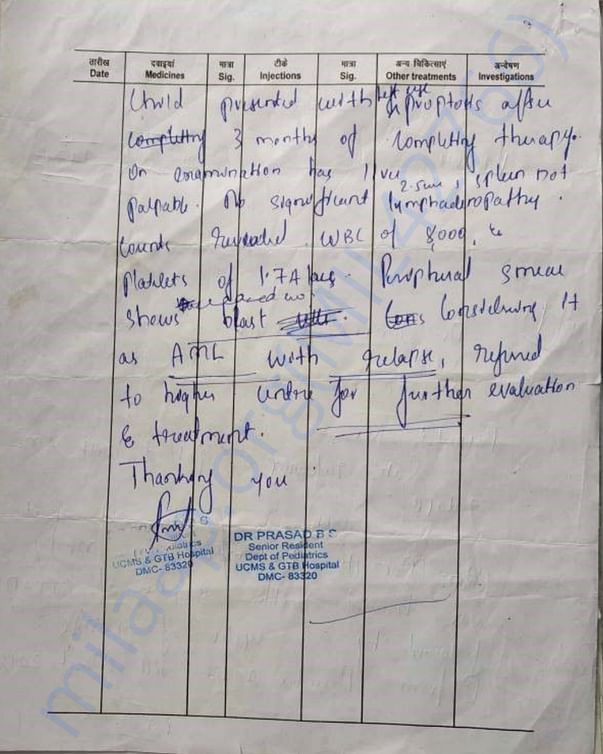 तारीख दवाइयां मात्रा टीके मात्रा अन्य चिकित्साएं अन्वेषण
Date Medicines Sig. Injections Sig. Other treatments Investigations
Child presented with left eye proptosis after
completing 3 months of completing therapy.
On examination has liver 2.5cm, spleen not
palpable. No significant lymphadenopathy.
Counts revealed WBC of 8,000,
Platelets of 1.74 lacs. Peripheral smear
shows blast Considering it
as AML with relapse, referred
to higher centre for further evaluation
& treatment.
Thanking you
UCMS & GTB Hospital
DMC- 83320
DR PRASAD B S
Senior Resident
Dept of Pediatrics
UCMS & GTB Hospital
DMC- 83320